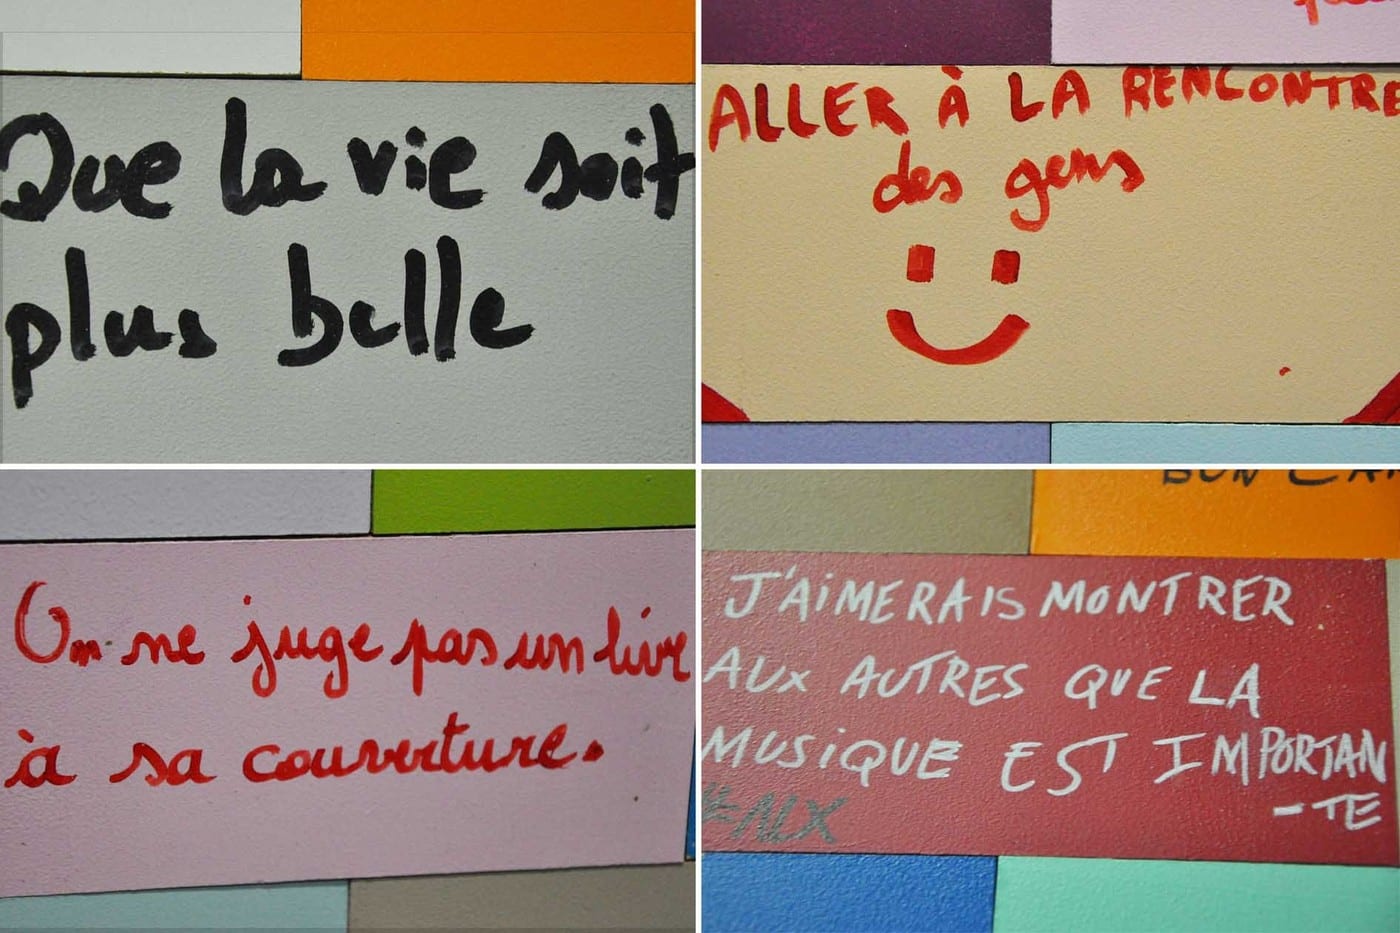 Que la vie soit
plus belle
ALLER À LA RENCONTRE
des gens
On ne juge pas un livre
à sa couverture.
BON
J'AIMERAIS MONTRER
AUX AUTRES QUE LA
MUSIQUE EST IMPORTAN
-TE